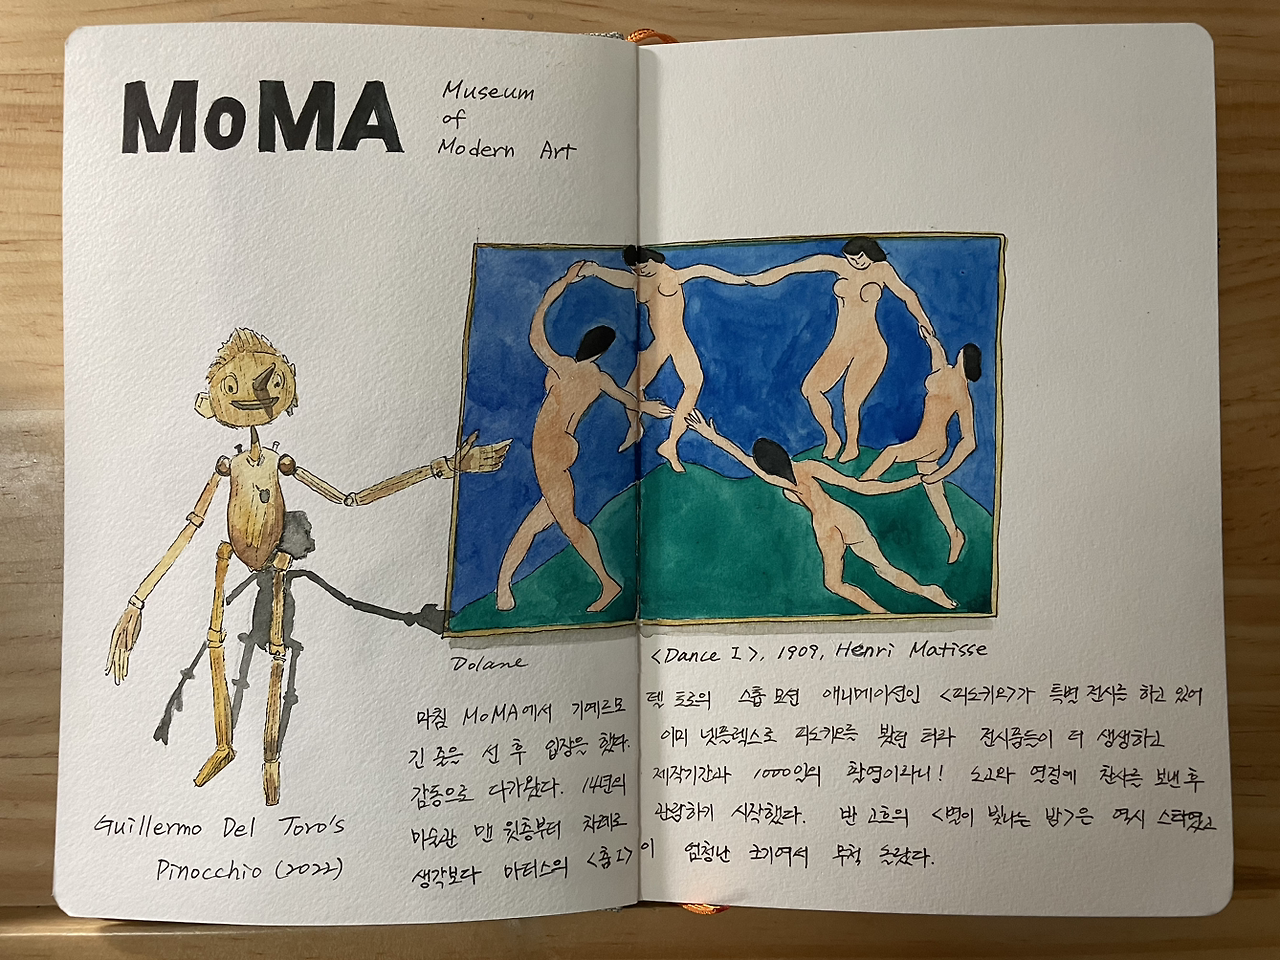 MoMA
Museum
of
Modern Art
Dolane
<Dance I>, 1909, Henri Matisse
Guillermo Del Toro's
Pinocchio (2022)
마침 MoMA에서 기예르모 델 토로의 스톱 모션 애니메이션인 <피노키오>가 특별 전시를 하고 있어
긴 줄을 선 후 입장을 했다. 이미 넷플렉스로 피노키오를 봤던 터라 전시품들이 더 생생하고
감동으로 다가왔다. 14년의 제작기간과 1000일의 촬영이라니! 노고와 열정에 찬사를 보낸 후
미술관 맨 윗층부터 차례로 관람하기 시작했다. 반 고흐의 <별이 빛나는 밤>은 역시 스타였고
생각보다 마티스의 <춤 I>이 엄청난 크기여서 무척 놀랐다.